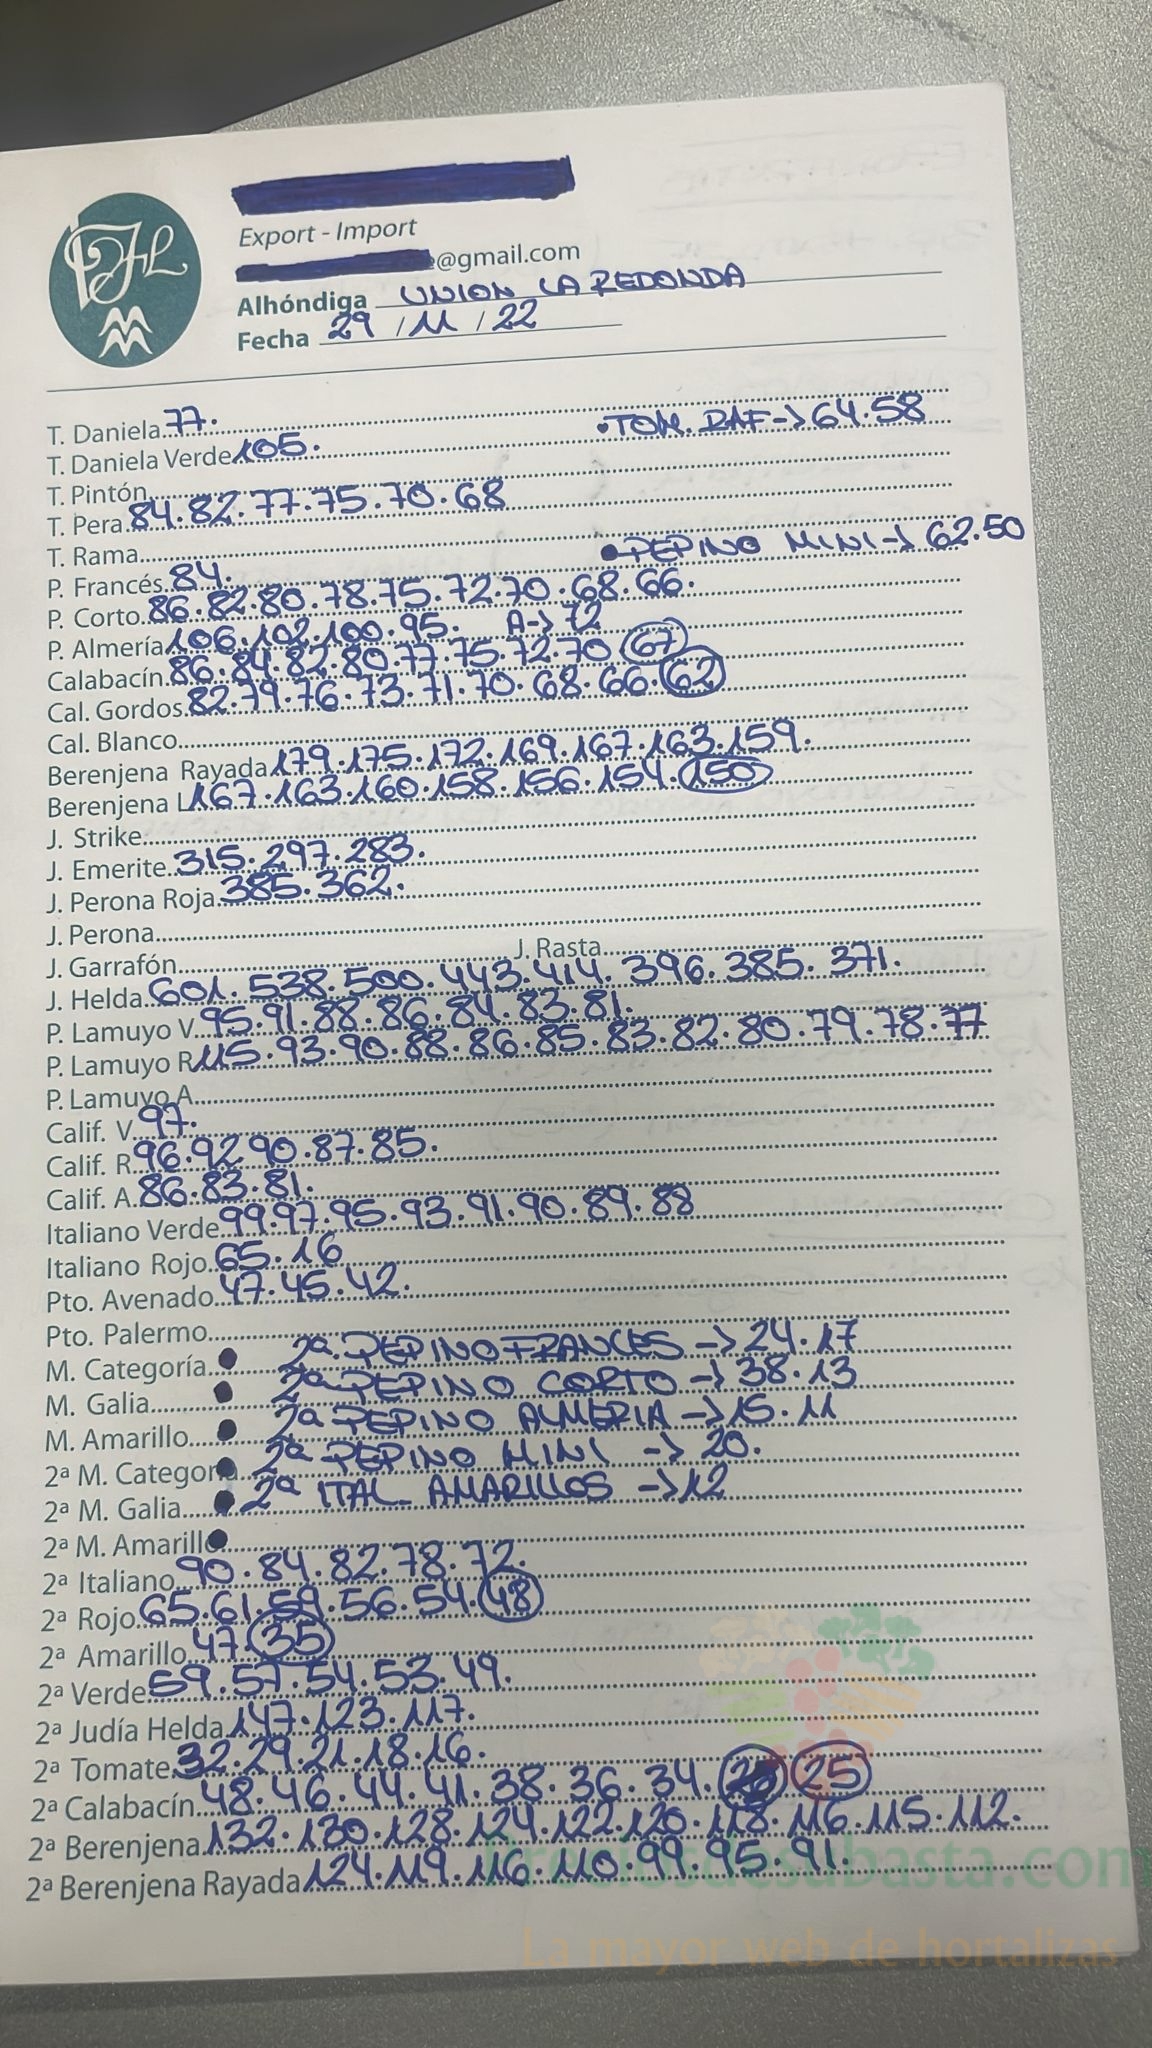 Export - Import
e@gmail.com
Alhóndiga UNION LA REDONDA
Fecha 29 / 11 / 22
T. Daniela 77.
•TOM. RAF-> 64.58
T. Daniela Verde 105.
T. Pintón
T. Pera 84.82.77.75.70.68
T. Rama
•PEPINO MINI-> 62.50
P. Francés 84.
P. Corto 86.82.80.78.75.72.70.68.66.
P. Almería 106.102.100.95. A-> 72
Calabacín 86.84.82.80.77.75.72.70 67
Cal. Gordos 82.79.76.73.71.70.68.66.62
Cal. Blanco
Berenjena Rayada 179.175.172.169.167.163.159.
Berenjena L 167.163.160.158.156.154.150
J. Strike
J. Emerite 315.297.283.
J. Perona Roja 385.362.
J. Perona
J. Garrafón J. Rasta
J. Helda 601.538.500.443.414.396.385.371.
P. Lamuyo V. 95.91.88.86.84.83.81.
P. Lamuyo R 115.93.90.88.86.85.83.82.80.79.78.77
P. Lamuyo A
Calif. V. 97.
Calif. R 96.92.90.87.85.
Calif. A. 86.83.81.
Italiano Verde 99.97.95.93.91.90.89.88
Italiano Rojo 65.16
Pto. Avenado 47.45.42.
Pto. Palermo
M. Categoría • 2ª PEPINO FRANCES -> 24.17
M. Galia • 2ª PEPINO CORTO -> 38.13
M. Amarillo • 2ª PEPINO ALMERIA -> 15.11
2ª M. Categoría 2ª PEPINO MINI -> 20.
2ª M. Galia • 2ª ITAL. AMARILLOS -> 12
2ª M. Amarillo
2ª Italiano 90.84.82.78.72.
2ª Rojo 65.61.59.56.54.48
2ª Amarillo 47.35
2ª Verde 59.57.54.53.49.
2ª Judía Helda 147.123.117.
2ª Tomate 32.29.21.18.16.
2ª Calabacín 48.46.44.41.38.36.34. 25
2ª Berenjena 132.130.128.124.122.120.118.116.115.112.
2ª Berenjena Rayada 124.119.116.110.99.95.91.
preciosdesubasta.com
La mayor web de hortalizas